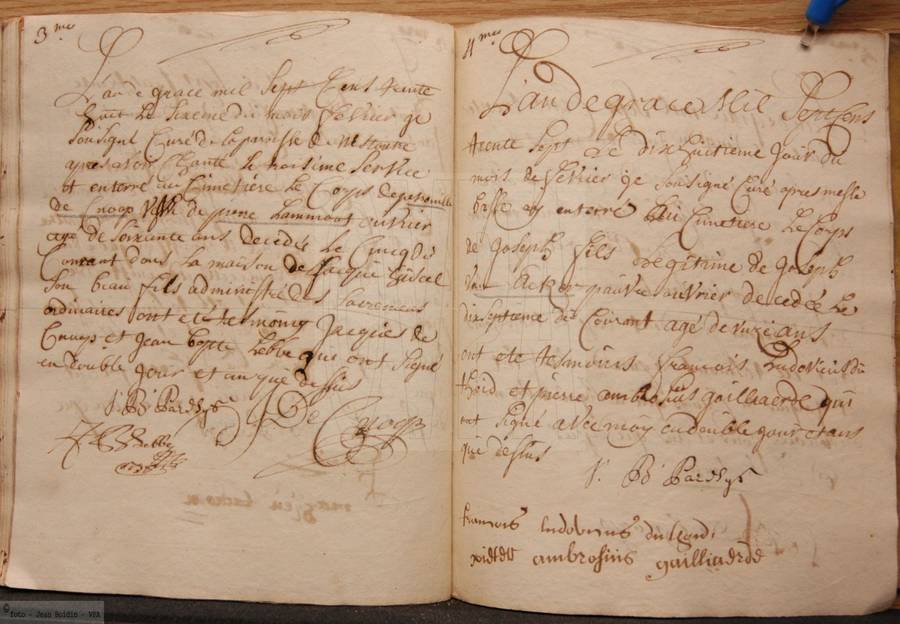 3me
L'an de grace mil Sept Cens trente
huit le sixieme du mois fevrier je
soussigné Curé de la paroisse de Westoutre
apres avoir Chanté le troisime Service
et enterré au Cimetiere le Corps de petronille
de Cnoop de pierre Lammoot ouvrier
age de soixante ans decedée le Cincq du
Courant dans la maison de Jacque
son beau fils administrée des Sacremens
ordinaires ont eté tesmoins Jacques de
Cnoop et Jean bapte Lebbe qui ont signé
en double jour et an que dessus
J. B. Pardys
De Cnoop
Lebbe
4me
L'an de grace Mil Sept Cens
trente Sept Le dix huitieme jour du
mois de fevrier je soussigné Curé apres messe
basse ay enterré au Cimetiere le Corps
de Joseph fils legitime de Joseph
Van Acker pauvre ouvrier decedée le
dix septieme du Courant agé de onze ans
ont ete tesmoins francois Ludovicus du
et pierre ambrosius gailliaerde qui
ont signé avec moy en double jour et an
que dessus
J. B. Pardys
francois ludovicus du
ambrosius gailliaerde
© foto - Jean Boidin - VVA